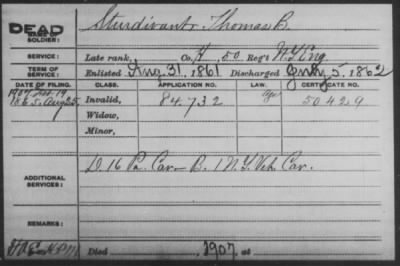 DEAD
NAME OF SOLDIER: Sturdivant, Thomas B.
SERVICE: Late rank, Co. H, 50 Reg't N.Y. Eng.
TERM OF SERVICE: Enlisted Aug. 31, 1861 Discharged July 5, 1862
DATE OF FILING. CLASS. APPLICATION NO. LAW. CERTIFICATE NO.
1865, Aug 25, Invalid, 84.732 50429
Widow,
Minor,
ADDITIONAL SERVICES: D. 16 Pa. Cav. B. 1 N.Y. Vet. Cav.
REMARKS:
Died 1907, at